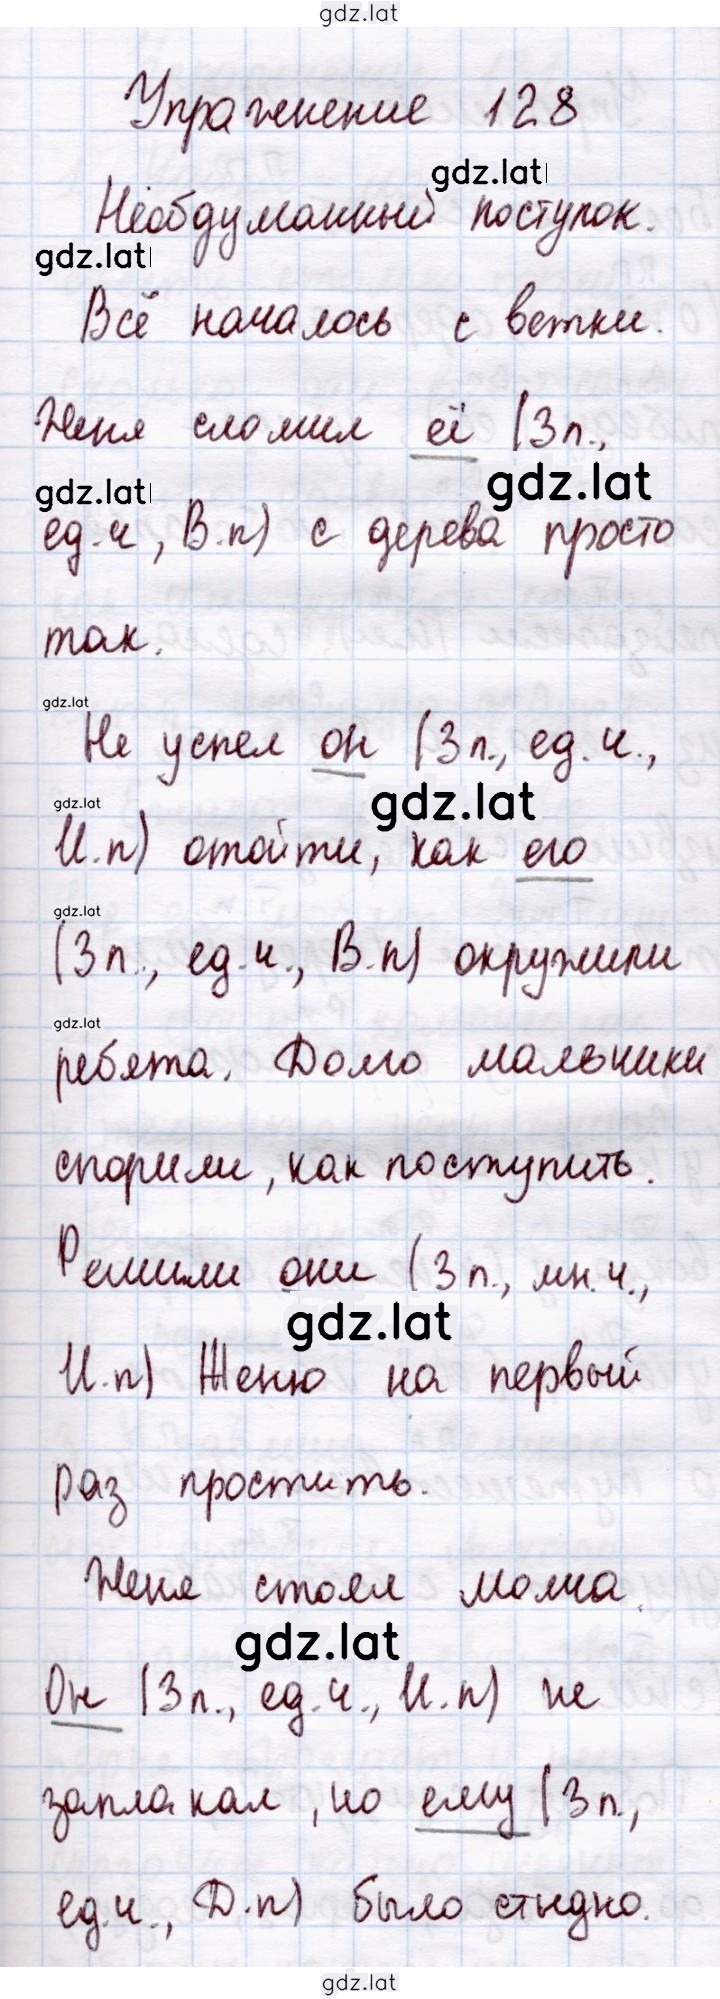 gdz.lat
Упражнение 128
gdz.lat
Необдуманный поступок.
gdz.lat
Всё началось с ветки.
Женя сломил её (3 л.,
gdz.lat
gdz.lat
ед.ч, В.п) с дерева просто
так.
gdz.lat
Не успел он (3 л., ед.ч.,
gdz.lat
gdz.lat
И.п) отойти, как его
gdz.lat
(3 л., ед.ч., В.п) окружили
gdz.lat
ребята. Долго мальчики
спорили, как поступить.
Решили они (3 л., мн.ч.,
gdz.lat
И.п) Женю на первый
раз простить.
Женя стоял молча.
gdz.lat
Он (3 л., ед.ч., И.п) не
заплакал, но ему (3 л.,
ед.ч., Д.п) было стыдно.
gdz.lat